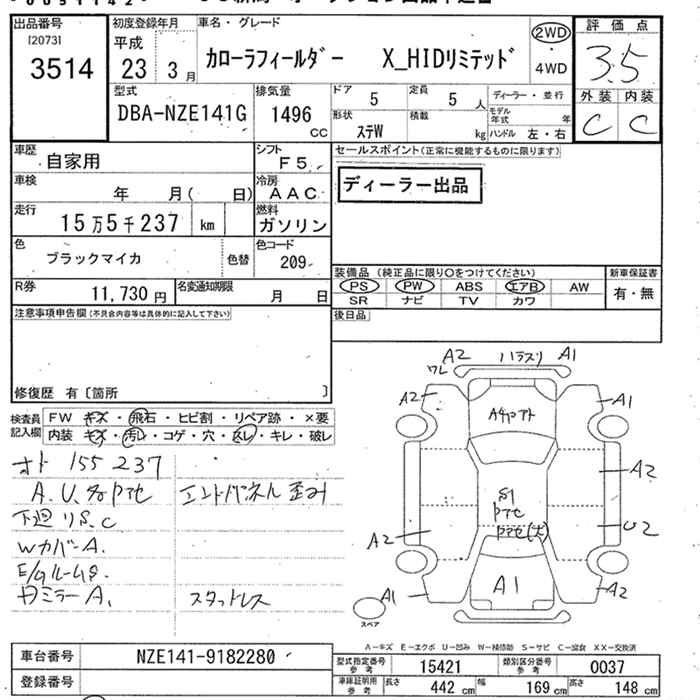 出品番号
[2073]
3514
初度登録年月
平成
23 年 3 月
車名・グレード
カローラフィールダー X_HIDリミテッド
2WD
4WD
評価点
3.5
外装 内装
C C
型式
DBA-NZE141G
排気量
1496 CC
ドア 5
定員 5 人
形状 ステW
積載 kg
ディーラー・並行
モデル年式 年
ハンドル 左・右
車歴
自家用
シフト F5
車検
年 月( 日)
冷房 AAC
走行
15万5千237 km
燃料
ガソリン
色
ブラックマイカ
色替
色コード
209
R券
11,730 円
名変通知期限
月 日
セールスポイント(正常に機能するものに限ります)
ディーラー出品
装備品(純正品に限り○をつけてください)
新車保証書
PS PW ABS エアB AW
SR ナビ TV カワ
有・無
後日品
注意事項申告欄(不具合内容等は具体的に記入して下さい)
修復歴 有〔箇所 〕
検査員記入欄
FW キズ・飛石・ヒビ割・リペア跡・×要
内装 キズ・汚レ・コゲ・穴・スレ・キレ・破レ
オド 155237
A.U.多
エンドパネル歪み
下廻りS.C
Wカバー A.
E/Gルーム S.
ドミラー A.
スタットレス
A2 ハラスリ A1
ワレ
A2
A1
A2
S1
U2
A2
A1
A1
A2
スペア
A-キズ E-エクボ U-凹み W-補修跡 S-サビ C-腐食 XX-交換済
車台番号
NZE141-9182280
登録番号
型式指定番号
参考
15421
類別区分番号
参考
0037
車庫証明用
参考
長さ 442 cm
幅 169 cm
高さ 148 cm